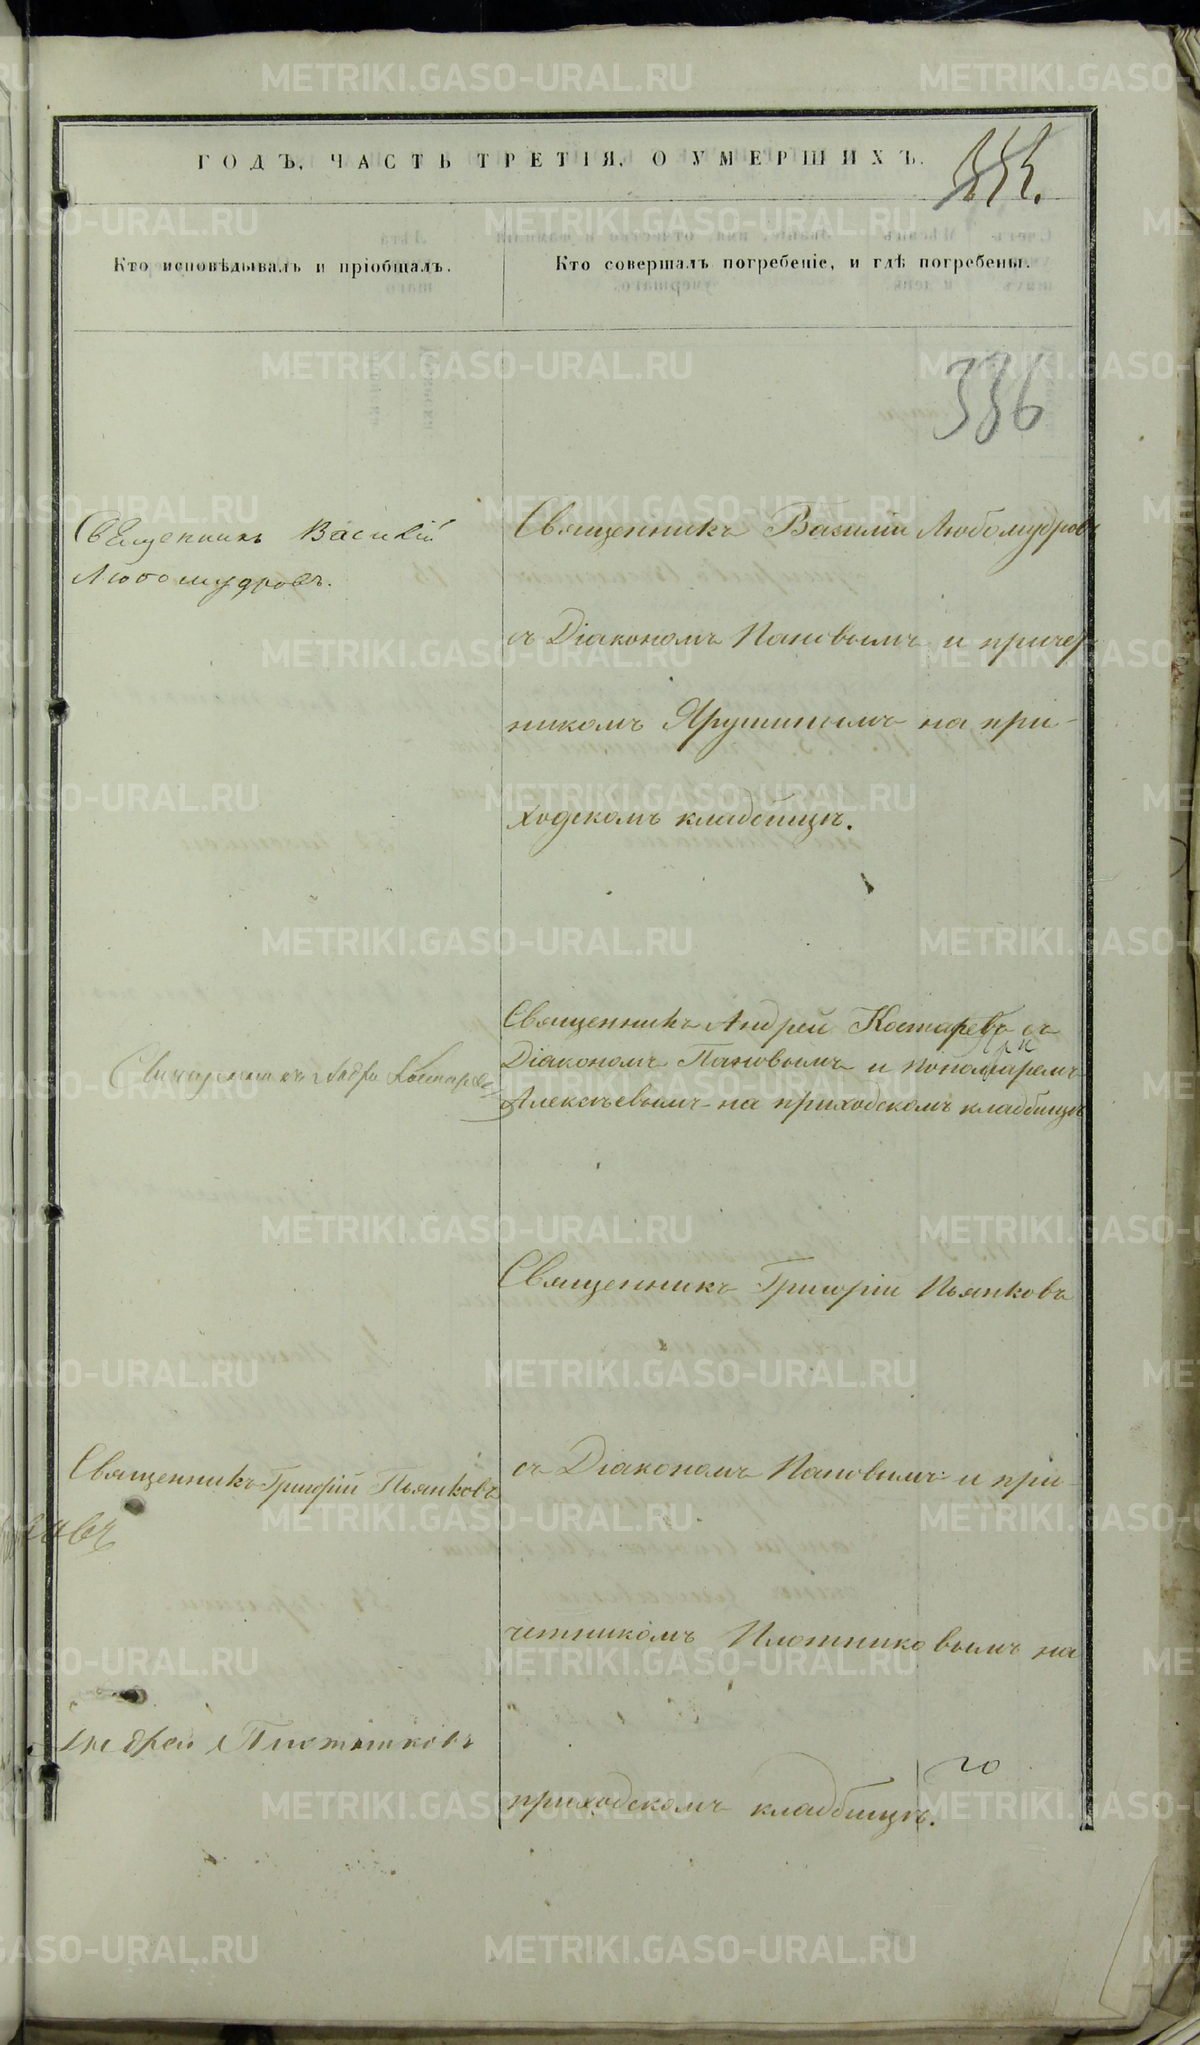 ГОДЪ, ЧАСТЬ ТРЕТІЯ, О УМЕРШИХЪ.
Кто исповѣдывалъ и пріобщалъ.
Кто совершалъ погребеніе, и гдѣ погребены.
336
Священникъ Василій
Любомудровъ.
Священникъ Василій Любомудровъ
съ Діакономъ Поповымъ и причет
никомъ Ярушинымъ на при-
ходскомъ кладбищѣ.
Священникъ Андрей Костаревъ съ
Діакономъ Поповымъ и пономаремъ
Алексѣевымъ на приходскомъ кладбищѣ
Священникъ Андрей Костаре
Священникъ Григорій Пьянковъ
Священникъ Григорій Пьянковъ
съ Діакономъ Поповымъ и при
четникомъ Плотниковымъ на
приходскомъ кладбищѣ.
Андрей Плотниковъ
METRIKI.GASO-URAL.RU